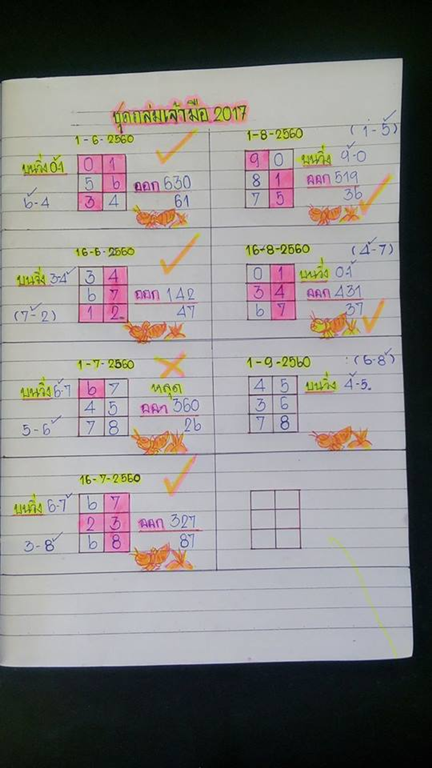 ชุดถล่มเจ้ามือ 2017
1-6-2560
บนวิ่ง 0-1
0 1
5 6
ออก 630
6-4
3 4
61
16-6-2560
บนวิ่ง 3-4
3 4
6 7
ออก 142
(7-2)
1 2
47
1-7-2560
บนวิ่ง 6-7
6 7
หลุด
4 5
ออก 360
5-6
7 8
26
16-7-2560
บนวิ่ง 6-7
6 7
2 3
ออก 327
3-8
6 8
87
1-8-2560 (1-5)
9 0
บนวิ่ง 9-0
8 1
ออก 519
7 5
36
16-8-2560 (4-7)
0 1
บนวิ่ง 0-1
3 4
ออก 431
6 7
37
1-9-2560 : (6-8)
4 5
บนวิ่ง 4-5
3 6
7 8